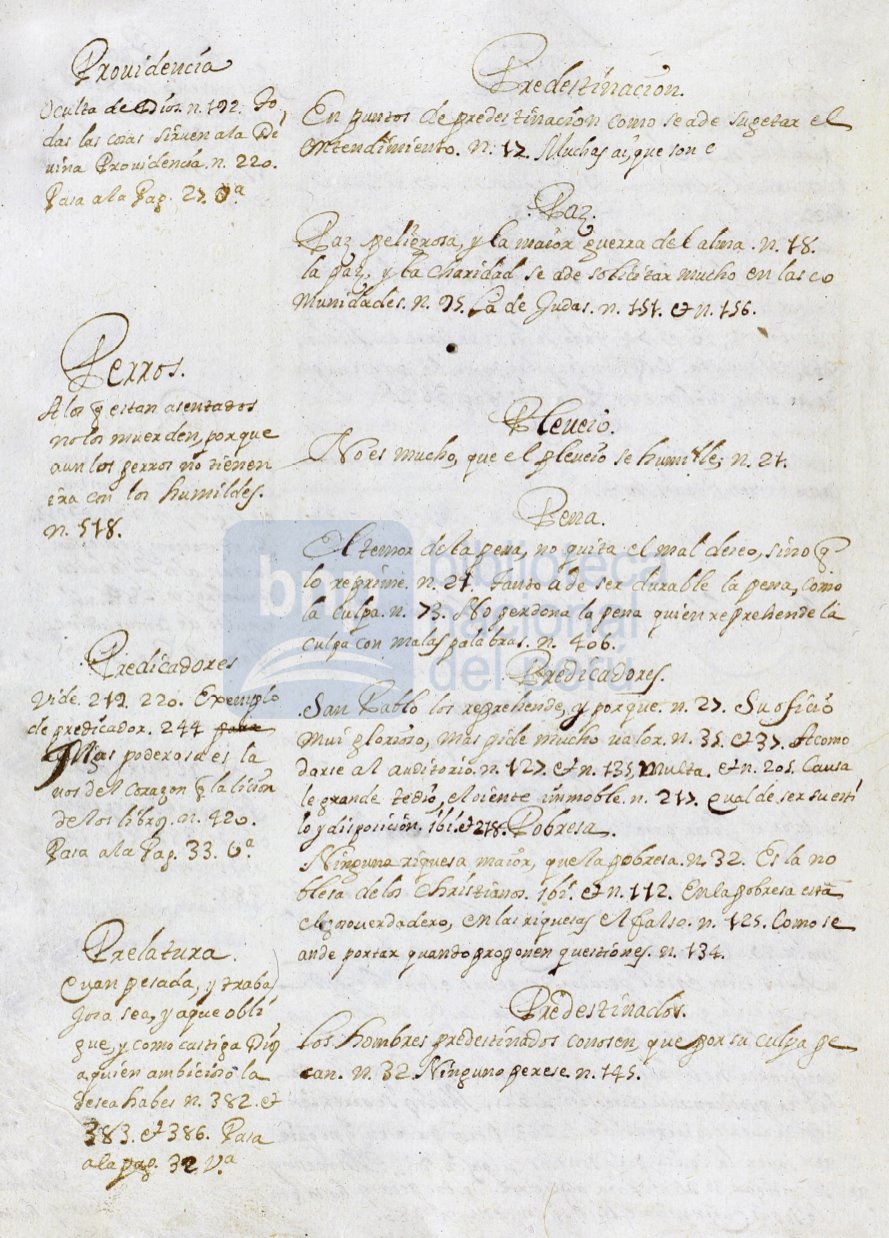 Providencia
Oculta de Dios. n. 192. to
das las cosas siruen a la Di
uina Prouidencia. n. 220.
Pasa a la Pag. 27. Vᵃ
Perros.
A los q̃ estan asentados
no los muerden, porque
aun los perros no tienen
ira con los humildes.
n. 518.
Predicadores
Vide. 219. 220. Exemplo
de predicador. 244
Mas poderosa es la
uos del corazon q̃ la licion
de los libros. n. 420.
Pasa a la Pag. 33. Vᵃ
Prelatura.
Cuan pesada, y traba
josa sea, y a que obli
gue, y como castiga Dios
a quien ambicioso la
desea habes n. 382. et
383. et 386. Pasa
a la pag. 32 Vᵃ
Predestinacion.
En puntos de predestinacion como se a de sugetar el
entendimiento. n. 17. Muchas ai, que son
Paz.
Paz peligrosa, y la maior guerra del alma. n. 18.
la paz, y la charidad se a de solicitar mucho en las co
munidades. n. 95. La de Judas. n. 151. et n. 156.
Pleueio.
No es mucho, que el pleueio se humille; n. 21.
Pena.
El temor de la pena, no quita el mal deseo, sino q̃
lo reprime. n. 21. tanto a de ser durable la pena, como
la culpa. n. 73. No perdona la pena quien reprehende la
culpa con malas palabras. n. 406.
Predicadores.
San Pablo los reprehende, y porque. n. 27. Su oficio
mui glorioso, mas pide mucho ualor. n. 35. et 37. Acomo
darse al auditorio. n. 127. et n. 135, Multa. et n. 205. Causa
le grande tedio, el oiente immoble. n. 217. Qual de ser su esti
lo y disposicion, ibi. et 218. Pobresa.
Ninguna riquesa maior, que la pobresa. n. 32. Es la no
blesa de los Christianos. ibi. et n. 112. En la pobresa està
el goso uerdadero, en las riquesas el falso. n. 125. Como se
ande portar quando proponen questiones. n. 134.
Predestinados.
Los hombres predestinados conosen, que por su culpa pe
can. n. 32. Ninguno perese. n. 145.
bnp biblioteca
nacional
del perú